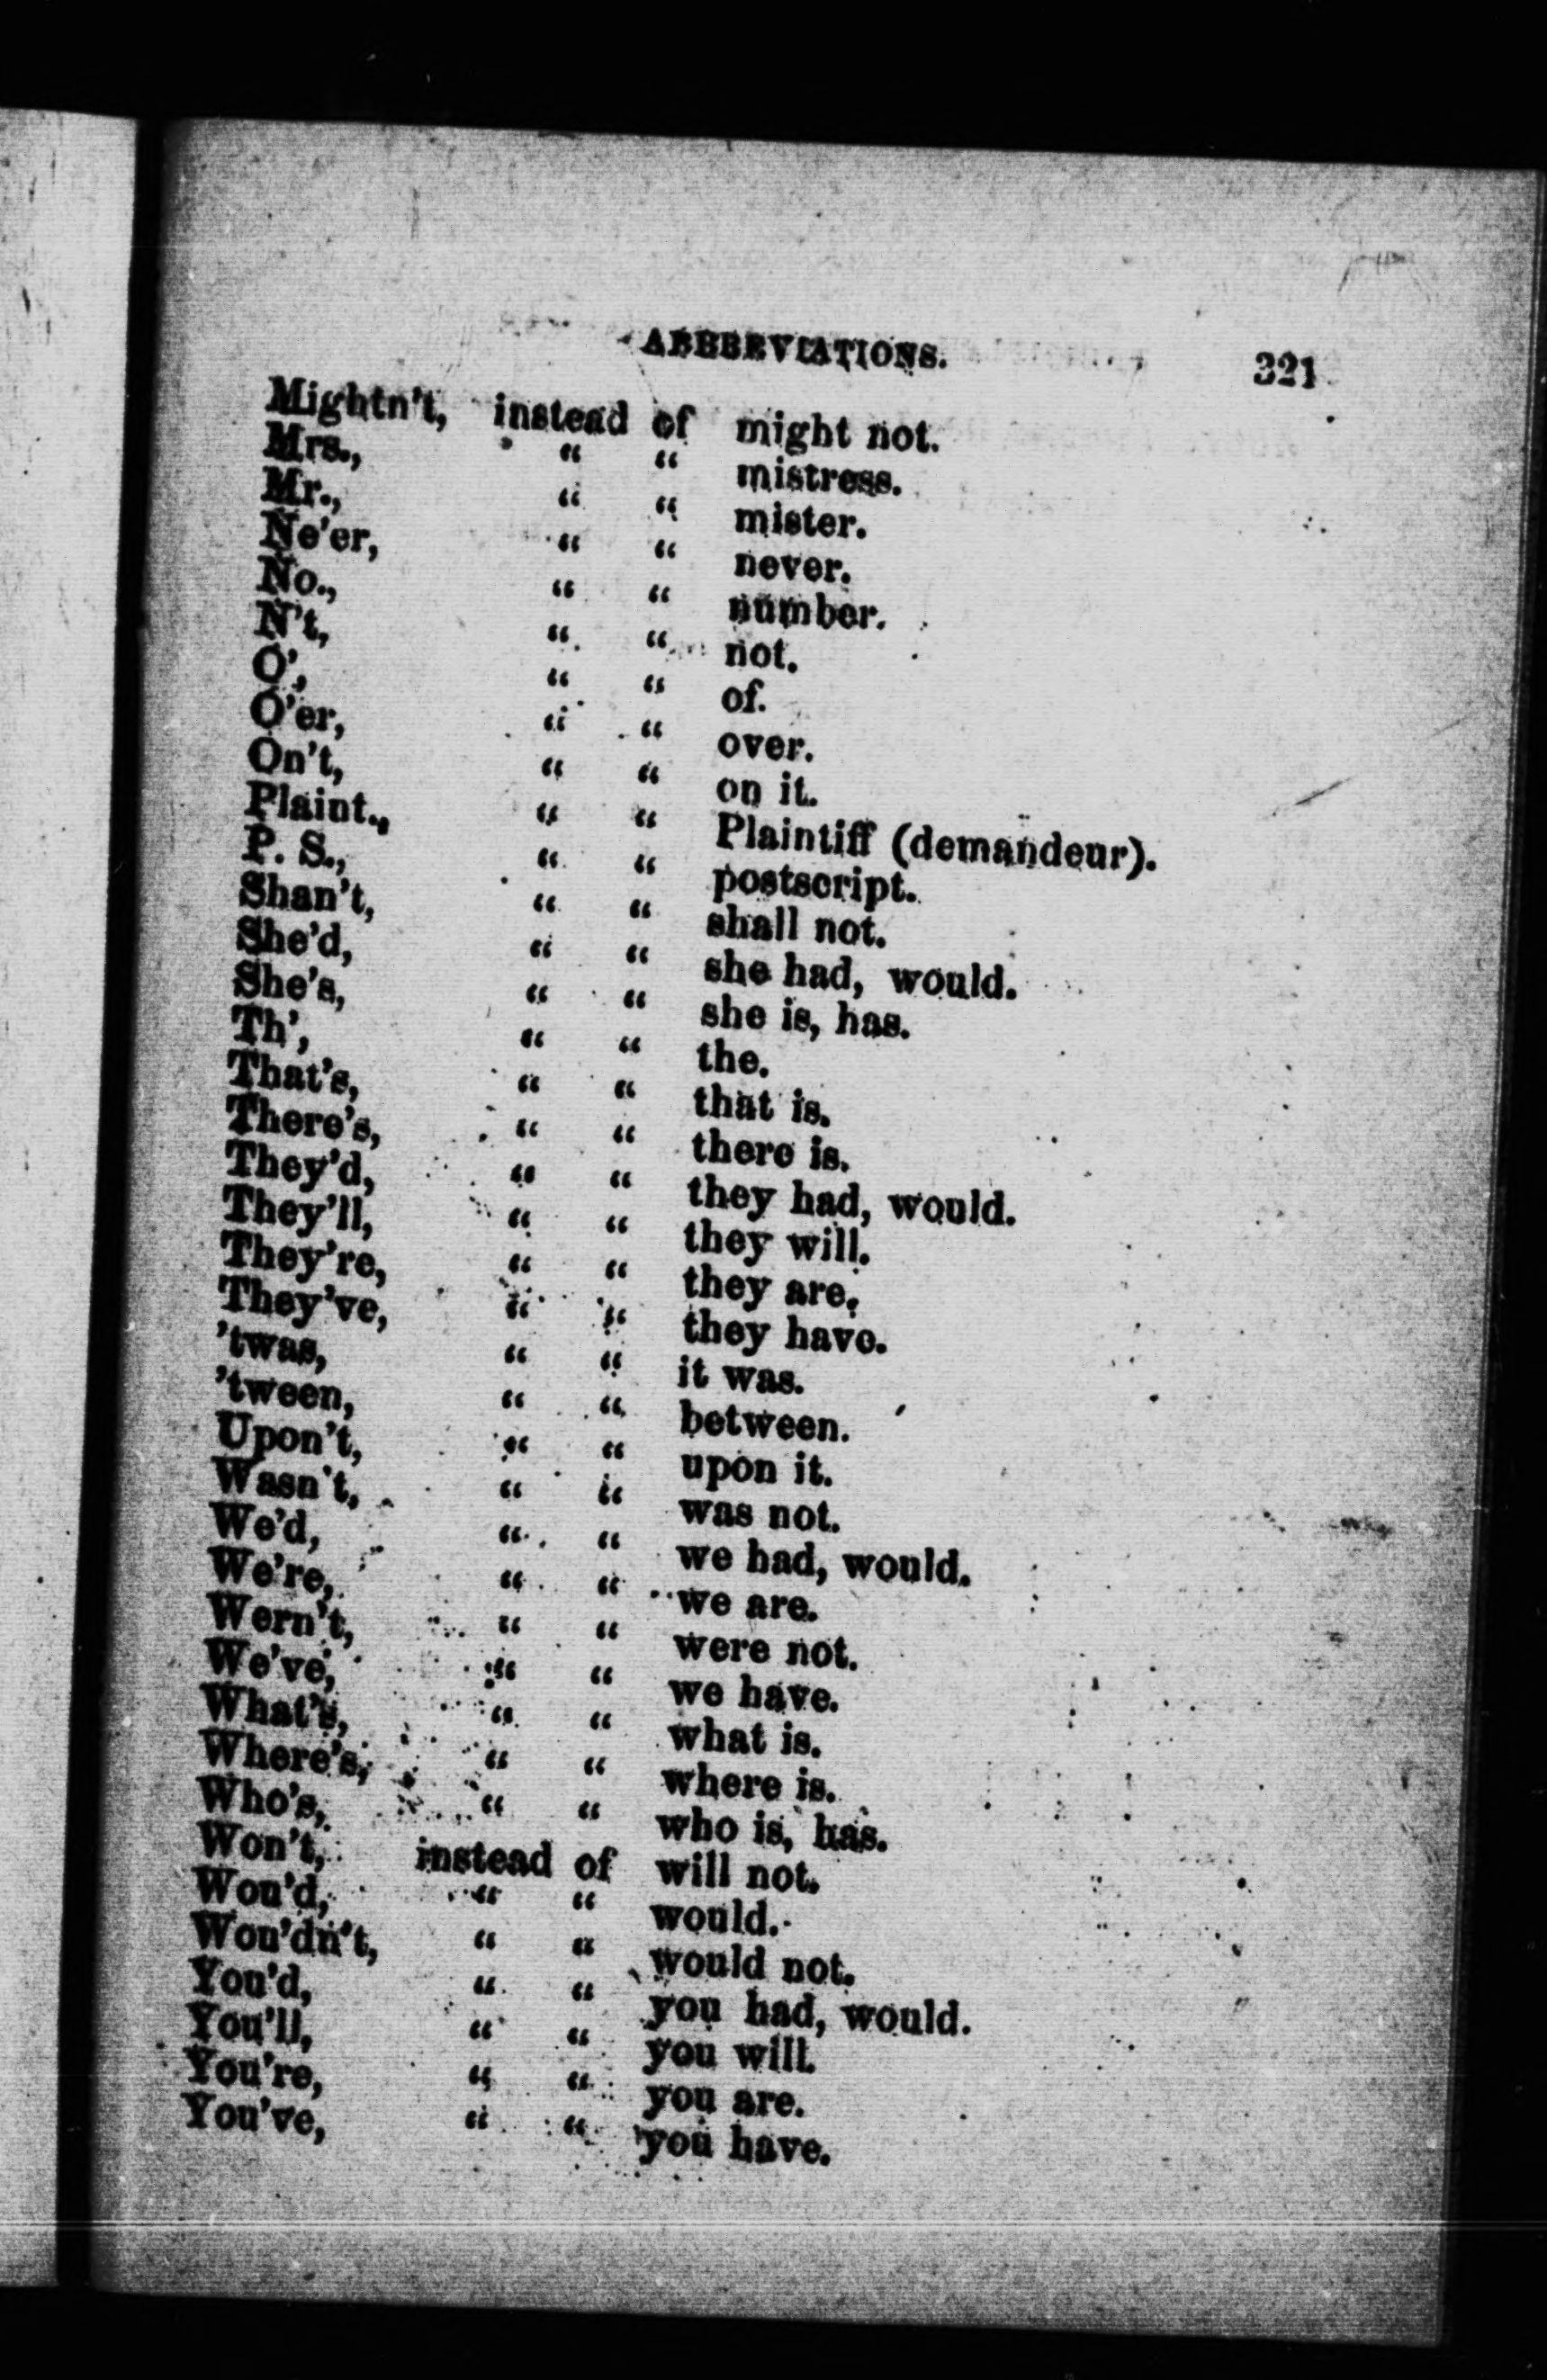 ABBREVIATIONS. 321
Mightn't, instead of might not.
Mrs., " " mistress.
Mr., " " mister.
Ne'er, " " never.
No., " " number.
N't, " " not.
O', " " of.
O'er, " " over.
On't, " " on it.
Plaint., " " Plaintiff (demandeur).
P. S., " " postscript.
Shan't, " " shall not.
She'd, " " she had, would.
She's, " " she is, has.
Th', " " the.
That's, " " that is.
There's, " " there is.
They'd, " " they had, would.
They'll, " " they will.
They're, " " they are.
They've, " " they have.
'twas, " " it was.
'tween, " " between.
Upon't, " " upon it.
Wasn't, " " was not.
We'd, " " we had, would.
We're, " " we are.
Wern't, " " were not.
We've, " " we have.
What's, " " what is.
Where's, " " where is.
Who's, " " who is, has.
Won't, instead of will not.
Wou'd, " " would.
Wou'dn't, " " would not.
You'd, " " you had, would.
You'll, " " you will.
You're, " " you are.
You've, " " you have.